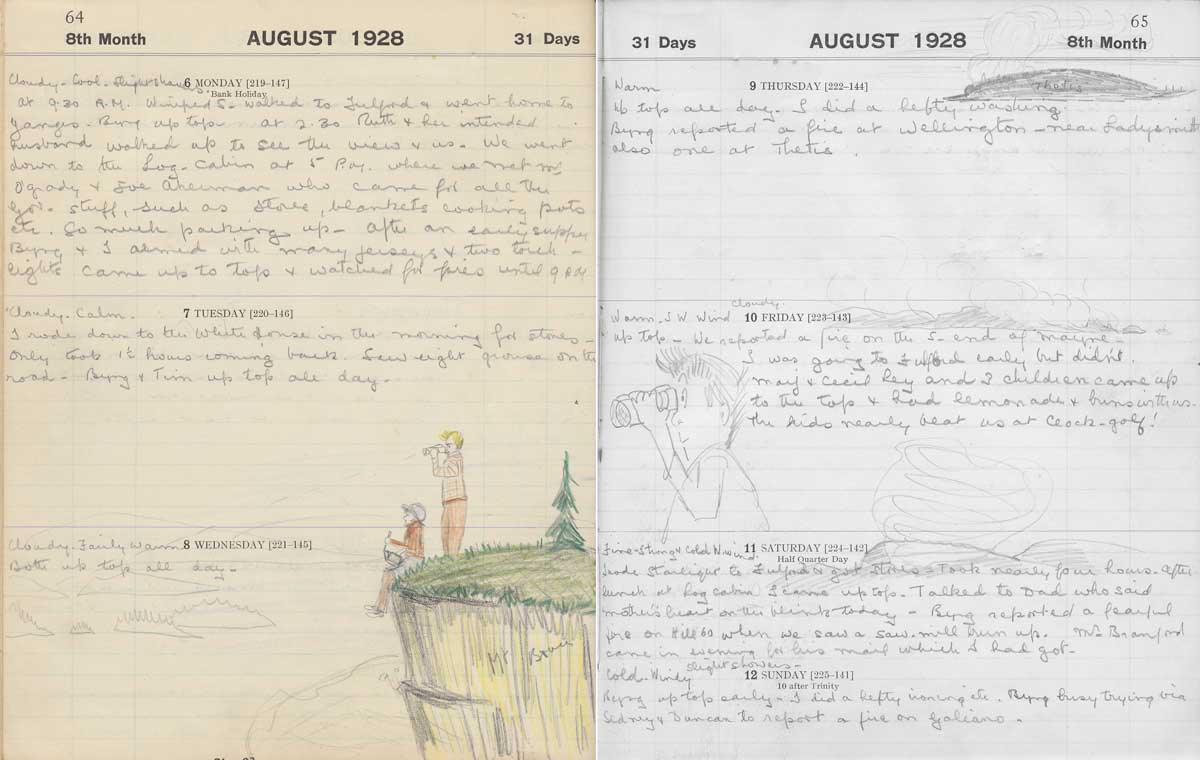 64
8th Month AUGUST 1928 31 Days
Cloudy - Cool - Slight showers 6 MONDAY [219-147]
Bank Holiday
at 9.30 A.M. Winifred S- walked to Fulford & went home to
Ganges. Byng up top. at 2.30 Ruth & her intended
husband walked up to see the view & us. We went
down to the Log-Cabin at 5 P.M. where we met Mr
O'grady & Joe Akerman who came for all the
Gov. stuff, such as stove, blankets cooking pots
etc. So much packing up - After an early supper
Byng & I armed with many jerseys & two torch-
lights came up to top & watched for fires until 9
Cloudy. Calm. 7 TUESDAY [220-146]
I rode down to the White House in the morning for stores -
Only took 1½ hours coming back. Saw eight grouse on the
road - Byng & Tim up top all day.
Cloudy. Fairly Warm 8 WEDNESDAY [221-145]
Both up top all day -
Mt Bruce
65
31 Days AUGUST 1928 8th Month
Warm 9 THURSDAY [222-144]
Thetis
Up top all day. I did a hefty washing.
Byng reported a fire at Wellington - near Ladysmith
also one at Thetis.
Cloudy.
Warm. S W Wind 10 FRIDAY [223-143]
Up top - We reported a fire on the S- end of Mayne -
I was going to Fulford early but didn't.
Marj & Cecil Ley and 3 children came up
to the top & had lemonade & buns with us.
The kids nearly beat us at Clock-golf!
Fine - Strong & Cold Wind 11 SATURDAY [224-142]
Half Quarter Day
rode Starlight to Fulford & got stores - Took nearly four hours. After
lunch at Log Cabin I came up top. Talked to Dad who said
mother's heart on the blink today - Byng reported a fearful
fire on Hill 60 when we saw a saw-mill burn up. Mr Branford
came in evening for his mail which I had got -
slight showers -
Cold. Windy 12 SUNDAY [225-141]
10 after Trinity
Byng up top early - I did a hefty ironing etc. Byng busy trying via
Sidney & Duncan to report a fire on Galiano.